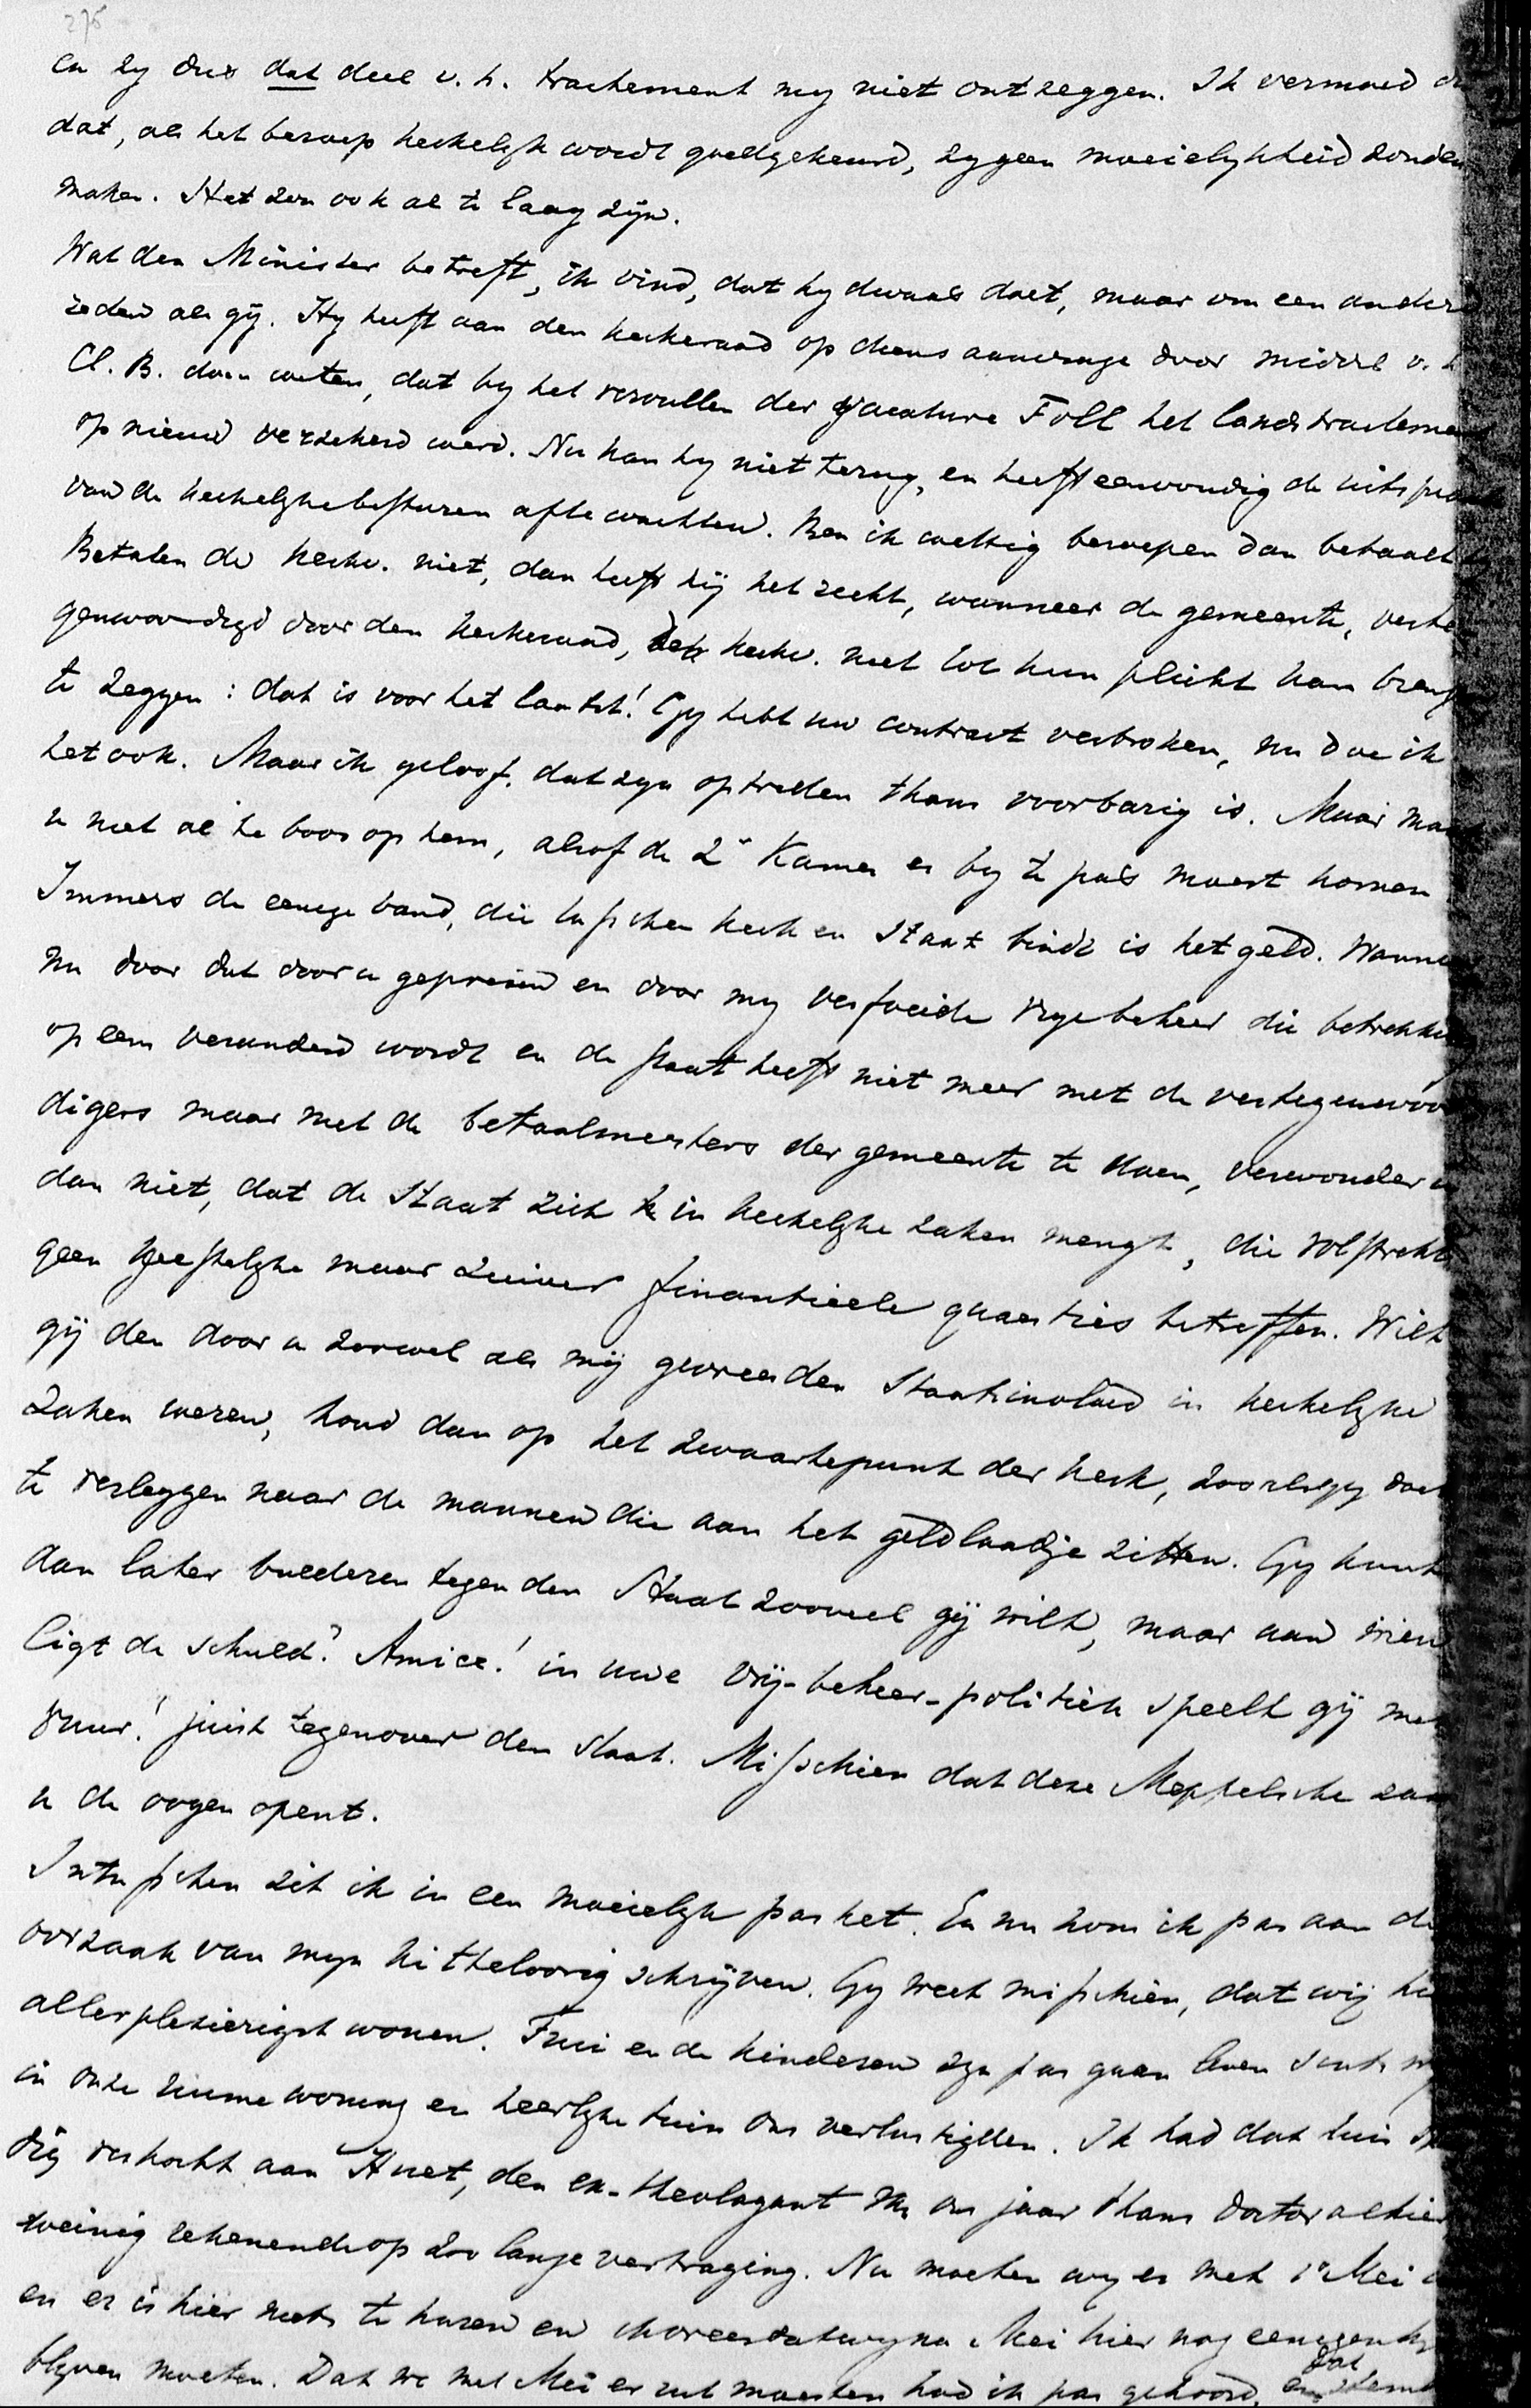 275
en zy dus dat deel v. h. tractement my niet ontzeggen. Ik vermoed
dat, als het beroep kerkelyk wordt goedgekeurd, zy geen moeielykheid zouden
maken. Het zou ook al te laag zijn.
Wat den Minister betreft, ik vind, dat hy dwaas doet, maar om een andere
reden als gij. Hy heeft aan den kerkeraad op diens aanvrage door middel v. h
Cl. B. doen weten, dat by het vervullen der vacature Foll het landstractement
op nieuw verzekerd werd. Nu kan hy niet terug, en heeft eenvoudig de uitspraak
van de kerkelyke besturen af te wachten. Ben ik wettig beroepen dan betaalt
Betalen de kerkv. niet, dan heeft hij het recht, wanneer de gemeente, verte
genwoordigd door den kerkeraad, de kerkv. niet tot hun plicht kan brengen
te zeggen: dat is voor het laatst! Gy hebt uw contract verbroken, nu doe ik
het ook. Maar ik geloof, dat zyn optreden thans voorbarig is. Maar maak
u niet al te boos op hem, alsof de 2e Kamer er by te pas moest komen
Immers de eenige band, die tusschen kerk en Staat bindt is het geld. Wanneer
nu door dat door u geprezen en door my verfoeide vrye beheer die betrekking
op eens veranderd wordt en de staat heeft niet meer met de vertegenwoor
digers maar met de betaalmeesters der gemeente te doen, verwonder u
dan niet, dat de Staat zich in kerkelyke zaken mengt, die volstrekt
geen geestelyke maar zuiver financieele quaesties betreffen. Wilt
gij den door u zoowel als mij gevreesden Staatsinvloed in kerkelyke
zaken weren, houd dan op het zwaartepunt der kerk, zooals gy doet
te verleggen naar de mannen die aan het geldlaadje zitten. Gy kunt
dan later bulderen tegen den Staat zooveel gij wilt, maar aan wien
ligt de schuld? Amice! in uwe vrij-beheer-politiek speelt gij met
vuur! juist tegenover den staat. Misschien dat deze Meppelsche zaak
u de oogen opent.
Intusschen zit ik in een moeielyk parket. En nu kom ik pas aan de
oorzaak van myn kitteloorig schrijven. Gy weet misschien, dat wij hier
allerplezierigst wonen. en de kinderen zyn pas gaan leven sints wij
in onze ruime woning en heerlyke tuin ons verlustigden. Ik had dat huis
verkocht aan Huet, den ex-theologant van ons jaar thans doctor alhier
weinig rekenende op zoo lange vertraging. Nu moeten wy er met 1e Mei
en er is hier niets te huren en dat wy na Mei hier nog eenigen ty
blyven moeten. Dat we met Mei er uit moesten had ik pas gehoord, en dat